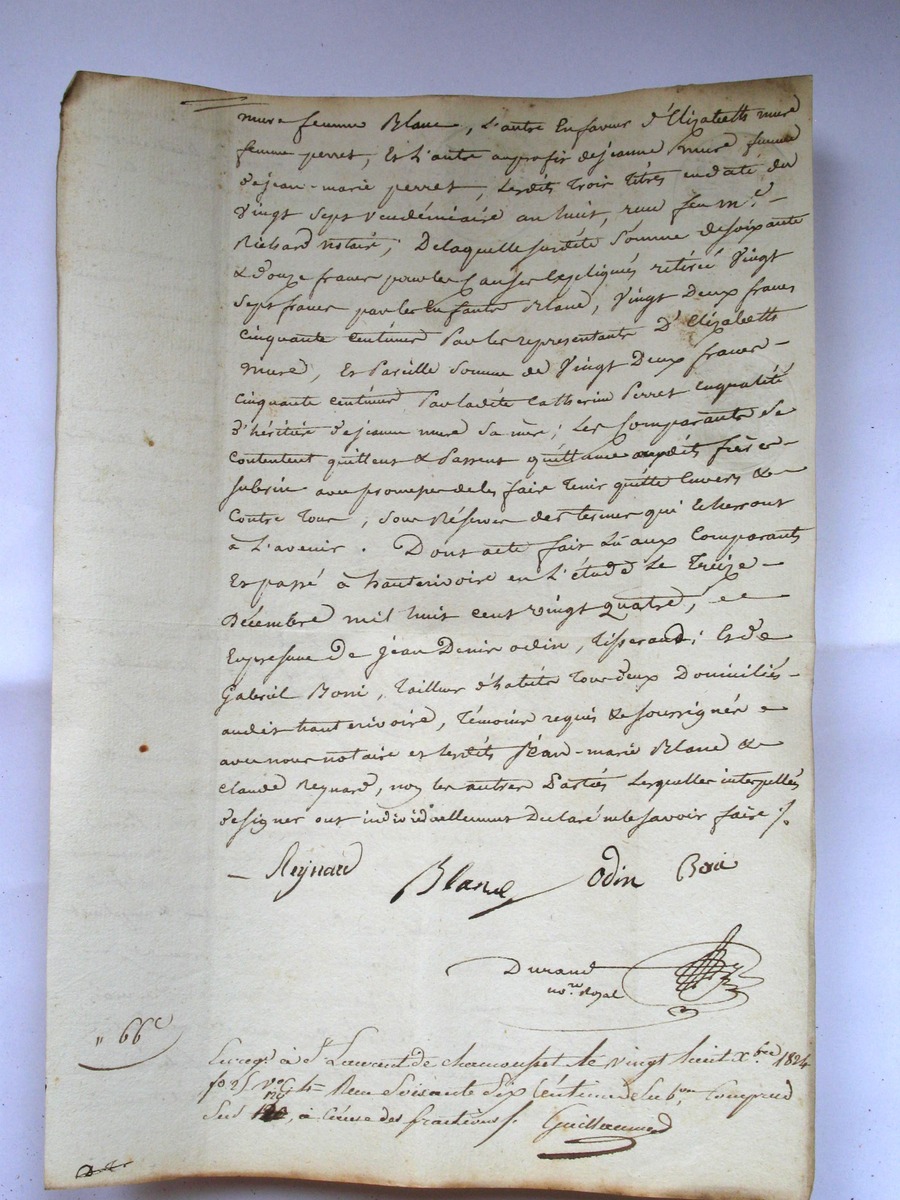 mure femme Blanc, L'autre En faveur d'Elizabeth mure
femme perret, Et L'autre au profit de jeanne mure femme
de jean-marie perret, Lesdits Trois Titres en daté du
Vingt Sept vendémiaire an huit, reçu feu m.e -
Richard notaire; De laquelle susdite Somme de soixante
& douze francs pour les Causes Expliqués retiré Vingt
Sept francs par les Enfants Blanc, Vingt Deux francs
cinquante centimes Par les representants D'Elizabeth
mure, Et Pareille Somme de Vingt Deux francs -
Cinquante centimes Par ladite Catherine Perret en qualité
d'héritiere de jeanne mure Sa mère; Les Comparants Se
Contentent quittent & Passent quittance auxdits frères -
Subrin avec promesse de les faire Tenir quitte Envers &
Contre Tous, Sous Réserves des termes qui Echerront
à L'avenir. Dont acte fait Lû aux Comparants
Et passé à hauterivoire en L'étude Le Treize -
Décembre mil huit cent vingt quatre,
En presence de jean Denis odin, Tisserand; Et de
Gabriel Boni, Tailleur d'habits Tous deux Domiciliés -
audit hauterivoire, Témoins requis & Soussignés
avec nous notaire et lesdits Jean-marie Blanc &
Claude Reynard, non les autres Parties Lesquelles interpellés
de signer ont individuellement Declaré ne le savoir faire ./.
- Reynard Blanc Odin Boni
Durand
no.re Royal
" 66 c
Enreg.é à S.t Laurent de chamousset le vingt huit Xbre 1824
f.o 25 v.o C. 4 Reçu Soixante Six Centimes Subon Compris
à Cause des fractions ./. Guillermed